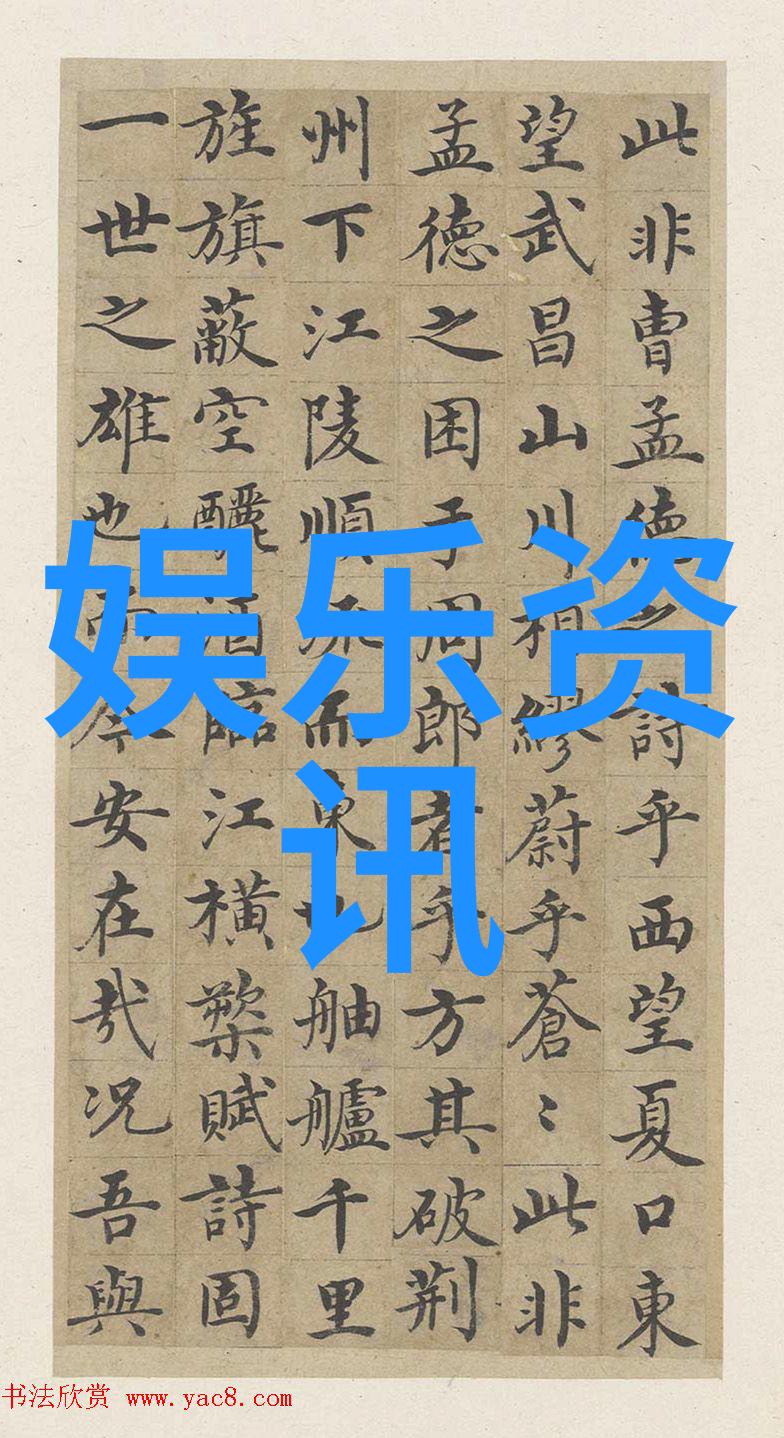 此非曹孟德之詩乎西望夏口東
望武昌山川相繆蔚乎蒼〻此非
孟德之困于周郎者乎方其破荆
州下江陵順流而東也舳艫千里
旌旗蔽空釃酒臨江橫槊賦詩固
一世之雄也而今安在哉况吾與
娱乐资
讯
书法欣赏 www.yac8.com